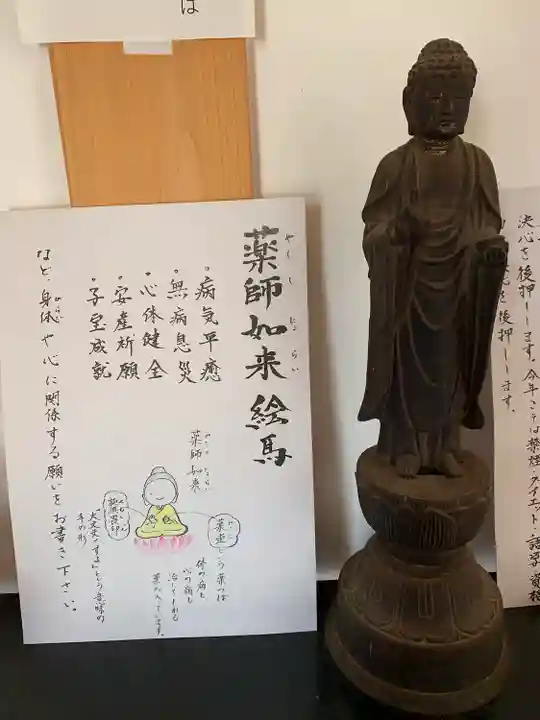 は
薬師如来 絵馬
やくしにょらい
・病気平癒
・無病息災
・心体健全
・安産祈願
・子宝成就
など、身体や心に関係する願いをお書き下さい。
からだ
薬師如来
やくしにょらい
薬壺という薬つぼ
やっこ
体の病も
心の病も
治してくれる
薬が入っています。
施無畏印
大丈夫ですよという意味の
手の形
決心を後押しします。今年こそは禁煙・ダイエット・語学・資格
を後押しします。